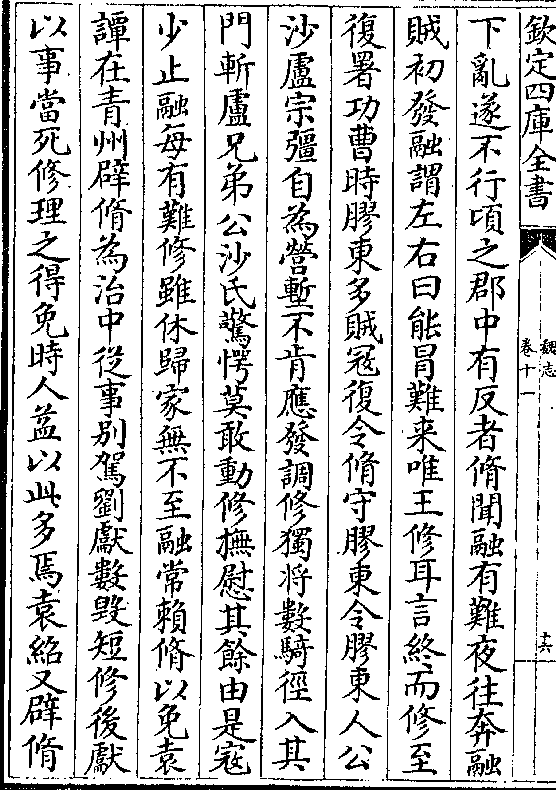 欽定四庫全書
魏志
卷十一
十六
下亂遂不行頃之郡中有反者脩聞融有難夜往奔融
賊初發融謂左右曰能冐難来唯王修耳言終而修至
復署功曹時膠東多賊冦復令脩守膠東令膠東人公
沙盧宗彊自為營塹不肯應發調修獨將數騎徑入其
門斬盧兄弟公沙氏驚愕莫敢動修撫慰其餘由是冦
少止融每有難修雖休歸家無不至融常賴脩以免袁
譚在青州辟脩為治中從事别駕劉獻數毁短修後獻
以事當死修理之得免時人益以此多焉袁紹又辟脩